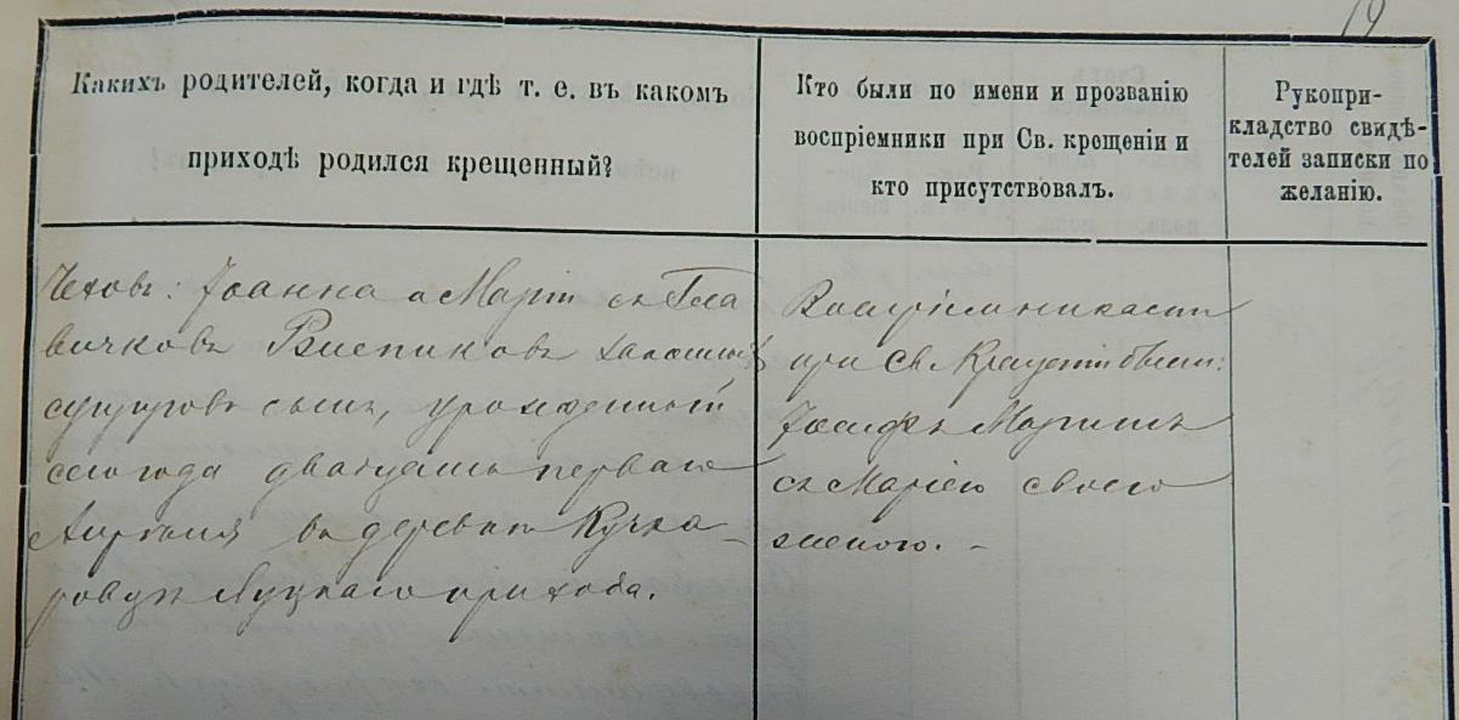 19
Какихъ родителей, когда и гдѣ т. е. въ какомъ
приходѣ родился крещенный?
Кто были по имени и прозванію
воспріемники при Св. крещеніи и
кто присутствовалъ.
Рукопри-
кладство свидѣ-
телей записки по
желанію.
Чеховъ: Іоанна и Маріи съ Гла
вичковъ законныхъ
супруговъ сынъ, урожденный
сего года двадцать перваго
Апрѣля въ деревнѣ Кучка-
ровцѣ Луцкаго прихода.
Воспріемниками
при Св. Крещеніи были:
Іосифъ
съ Маріею своею
женою. -